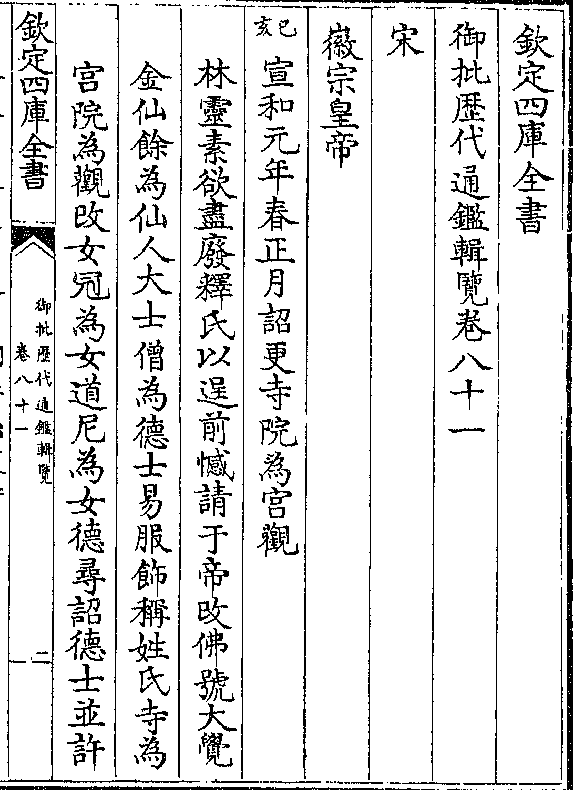 欽定四庫全書
御批歴代通鑑輯覽卷八十一
宋
徽宗皇帝
己亥宣和元年春正月詔更寺院為宫觀
林靈素欲盡廢釋氏以逞前憾請于帝改佛號大覺
金仙餘為仙人大士僧為德士易服飾稱姓氏寺為
宫院為觀改女冠為女道尼為女德尋詔德士並許
欽定四庫全書
御批歷代通鑑輯覽
卷八十一
二